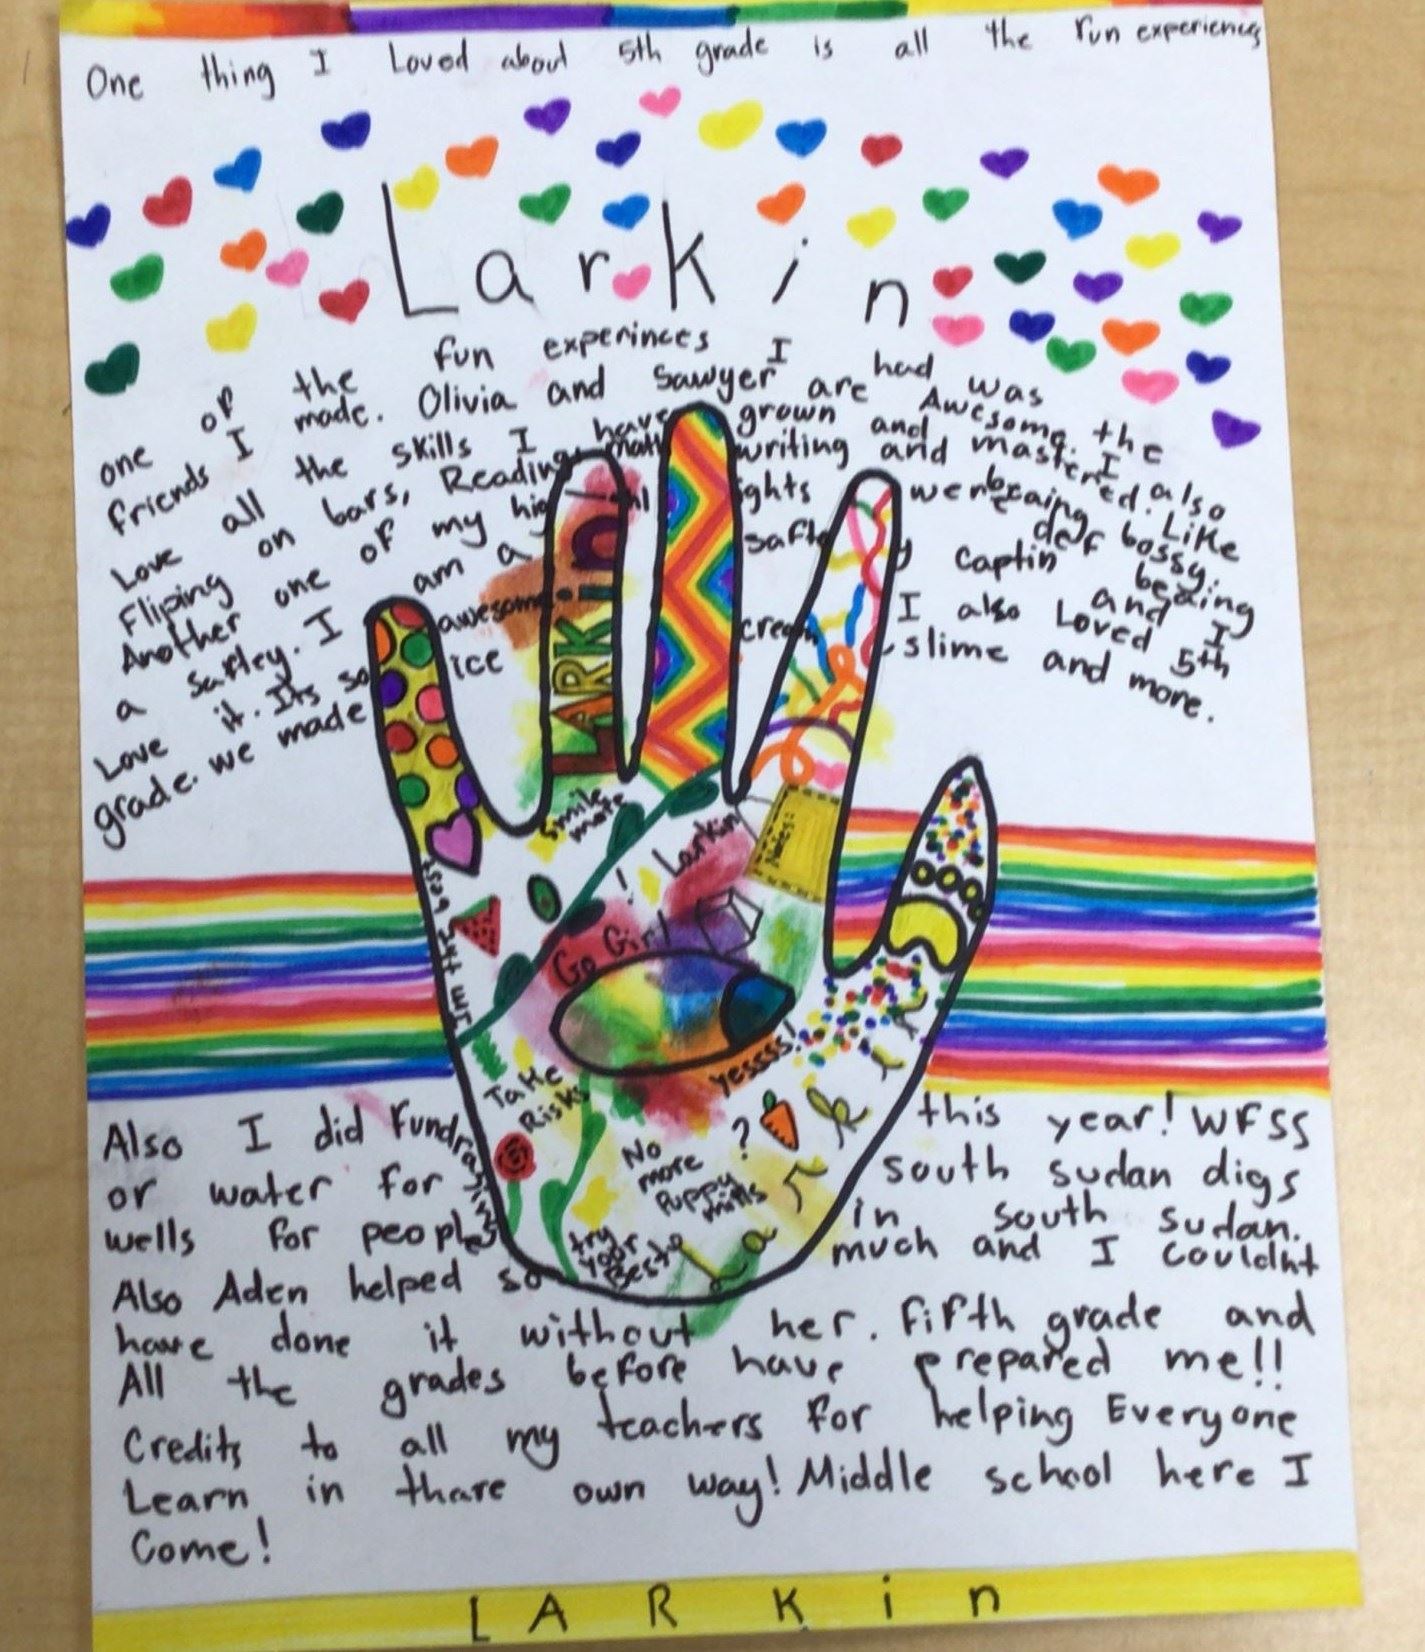 One thing I Loved about 5th grade is all the Fun experiences
Larkin
one of the fun experinces I had was the
friends I made. Olivia and Sawyer are Awesome. I also
Love all the skills I have grown and mastered. Like
Fliping on bars, Reading, math writing and def bossy.
Another one of my highlights were beaing
a saftey. I am a safty captin and I
Love it. Its so awesome I also Loved 5th
grade. we made ice cream, slime and more.
LARKin
smile more
Larkin!
Notes:
I'm the best
Go Girl
yessss!
Take Risks
No more Puppy mills
?
try your Best
Larkin
Also I did Fundrasing this year! WFSS
or water for south sudan digs
wells for people in south sudan.
Also Aden helped so much and I couldnt
have done it without her. fifth grade and
All the grades before have prepared me!!
Credits to all my teachers for helping Everyone
Learn in thare own way! Middle school here I
Come!
LARKin